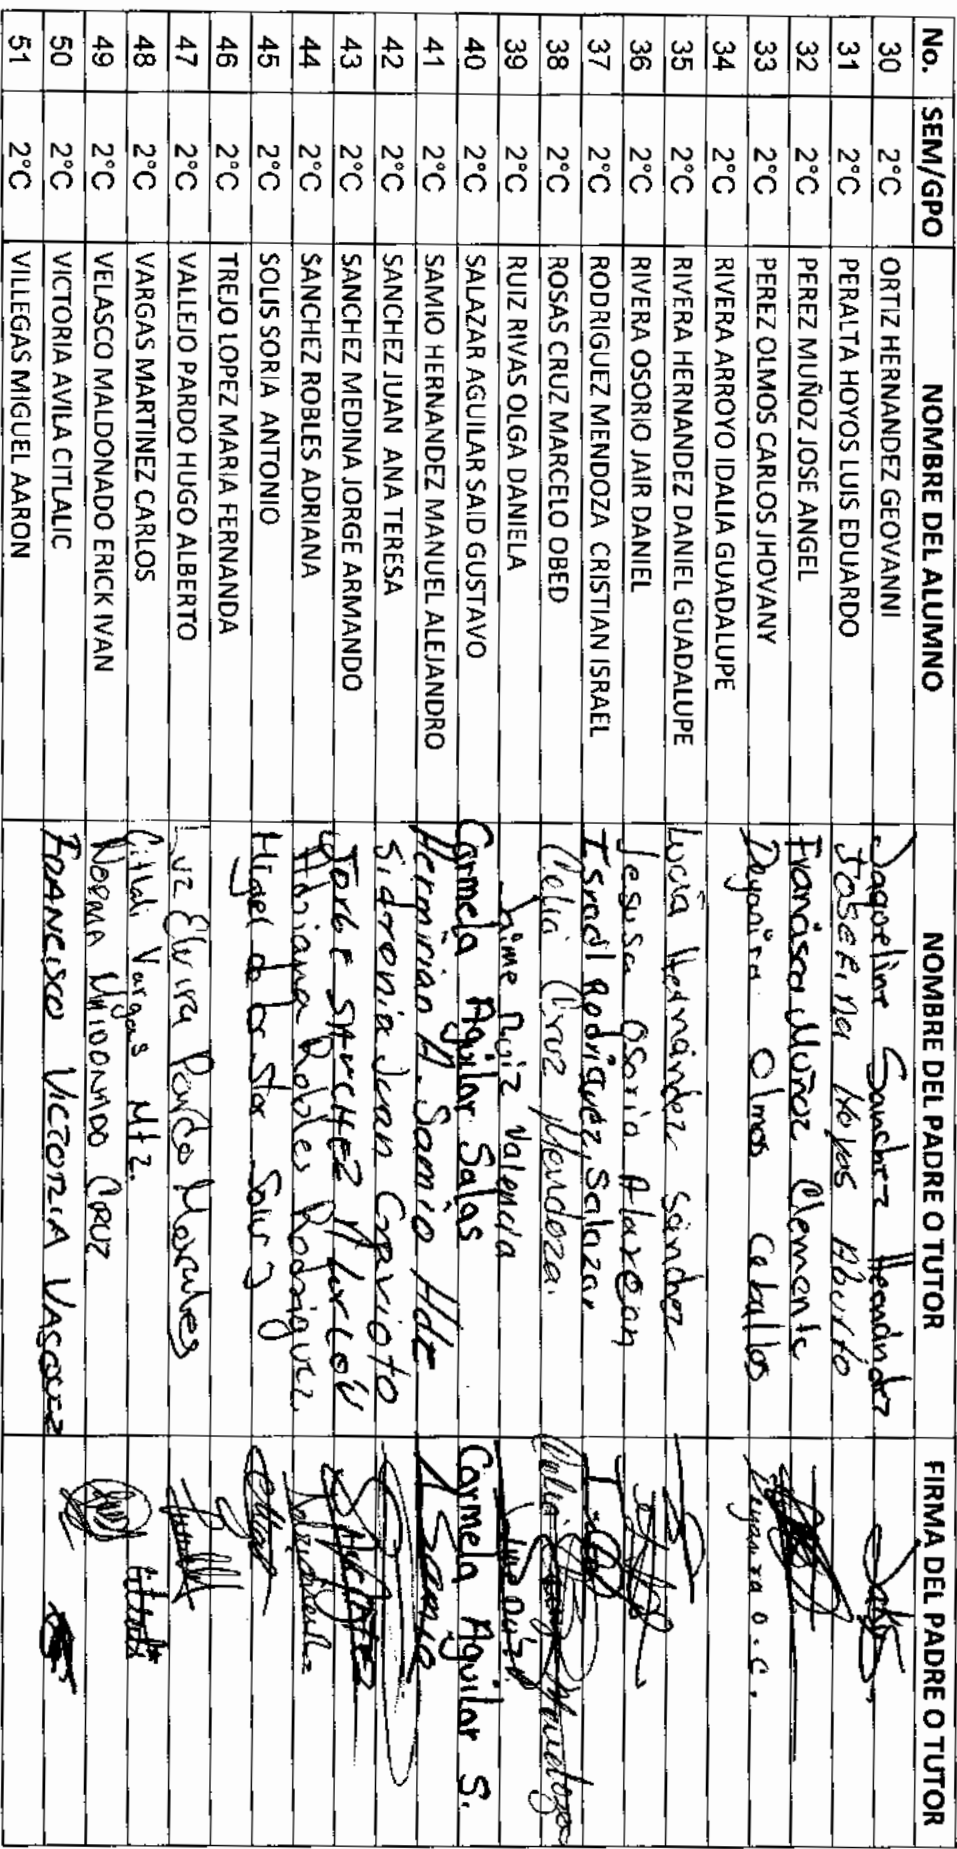 No. SEM/GPO NOMBRE DEL ALUMNO NOMBRE DEL PADRE O TUTOR FIRMA DEL PADRE O TUTOR
30 2°C ORTIZ HERNANDEZ GEOVANNI Jaqueline Sanchez Hernandez
31 2°C PERALTA HOYOS LUIS EDUARDO Josefina Hoyos Aburto
32 2°C PEREZ MUÑOZ JOSE ANGEL Francisca Muñoz Clemente
33 2°C PEREZ OLMOS CARLOS JHOVANY Deyanira Olmos Ceballos Deyanira O.C.
34 2°C RIVERA ARROYO IDALIA GUADALUPE
35 2°C RIVERA HERNANDEZ DANIEL GUADALUPE Lucía Hernández Sánchez
36 2°C RIVERA OSORIO JAIR DANIEL Jesusa Osorio Alarcon
37 2°C RODRIGUEZ MENDOZA CRISTIAN ISRAEL Israel Rodriguez Salazar
38 2°C ROSAS CRUZ MARCELO OBED Celia Cruz Mendoza. Celia Cruz Mendoza
39 2°C RUIZ RIVAS OLGA DANIELA Jaime Ruiz Valencia
40 2°C SALAZAR AGUILAR SAID GUSTAVO Carmela Aguilar Salas Carmela Aguilar S.
41 2°C SAMIO HERNANDEZ MANUEL ALEJANDRO Herminio A. Samio Hdz Samio
42 2°C SANCHEZ JUAN ANA TERESA Sidronia Juan Gavioto
43 2°C SANCHEZ MEDINA JORGE ARMANDO Jorge SANCHEZ Sanchez
44 2°C SANCHEZ ROBLES ADRIANA Adriana Robles Rodriguez.
45 2°C SOLIS SORIA ANTONIO Miguel
46 2°C TREJO LOPEZ MARIA FERNANDA
47 2°C VALLEJO PARDO HUGO ALBERTO Luz Elvira Pardo Morales
48 2°C VARGAS MARTINEZ CARLOS Citlali Vargas Mtz.
49 2°C VELASCO MALDONADO ERICK IVAN NORMA MALDONADO CRUZ
50 2°C VICTORIA AVILA CITLALIC FRANCISCO VICTORIA VASQUEZ
51 2°C VILLEGAS MIGUEL AARON